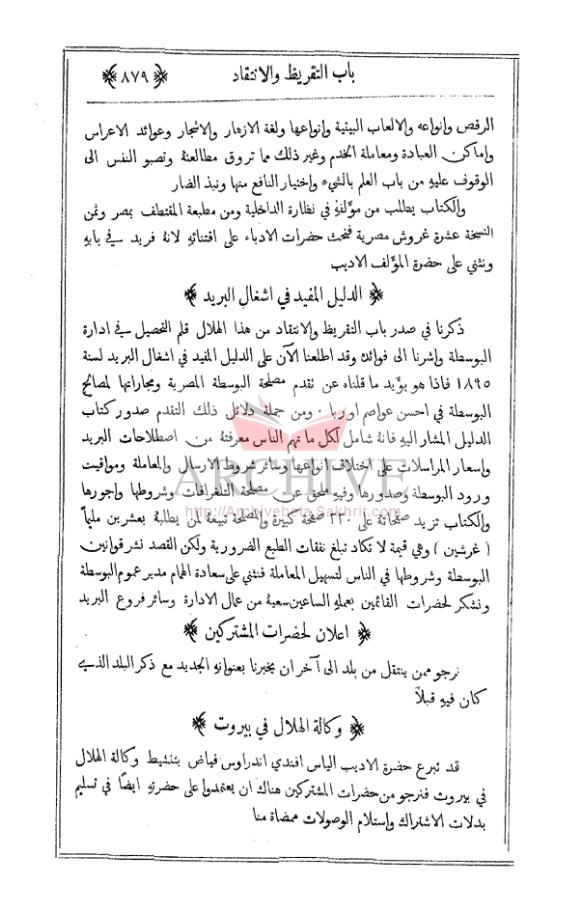 باب التقريظ والانتقاد
﴿ ٨٧٩ ﴾
الرقص وانواعه والالعاب البيتية وانواعها ولغة الازهار والاشجار وعوائد الاعراس
واماكن العبادة ومعاملة الخدم وغير ذلك مما تروق مطالعتهُ وتصبو النفس الى
الوقوف عليهِ من باب العلم بالشيء واختيار النافع منها ونبذ الضار
والكتاب يطلب من مؤلفهِ في نظارة الداخلية ومن مطبعة المقتطف بمصر وثمن
النسخة عشرة غروش مصرية فنحث حضرات الادباء على اقتنائهِ لانهُ فريد في بابهِ
ونثني على حضرة المؤلف الاديب
﴿ الدليل المفيد في اشغال البريد ﴾
ذكرنا في صدر باب التقريظ والانتقاد من هذا الهلال قلم التحصيل في ادارة
البوسطة واشرنا الى فوائدهِ وقد اطلعنا الآن على الدليل المفيد في اشغال البريد لسنة
١٨٩٥ فاذا هو يؤيد ما قلناه عن تقدم مصلحة البوسطة المصرية ومجاراتها لمصالح
البوسطة في احسن عواصم اوربا · ومن جملة دلائل ذلك التقدم صدور كتاب
الدليل المشار اليهِ فانهُ شامل لكل ما تهم الناس معرفتهُ من اصطلاحات البريد
واسعار المراسلات على اختلاف انواعها وسائر شروط الارسال والمعاملة ومواقيت
ورود البوسطة وصدورها وفيهِ ملحق عن مصلحة التلغرافات وشروطها واجورها
والكتاب تزيد صفحاتهُ على ٢٣٠ صفحة كبيرة والمصلحة تبيعهُ لمن يطلبهُ بعشرين مليماً
( غرشين ) وهي قيمة لا تكاد تبلغ نفقات الطبع الضرورية ولكن القصد نشر قوانين
البوسطة وشروطها في الناس لتسهيل المعاملة فنثني على سعادة الهمام مدير عموم البوسطة
ونشكر لحضرات القائمين بعملهِ الساعين سعيهُ من عمال الادارة وسائر فروع البريد
﴿ اعلان لحضرات المشتركين ﴾
نرجو ممن ينتقل من بلد الى آخر ان يخبرنا بعنوانهِ الجديد مع ذكر البلد الذي
كان فيهِ قبلاً
﴿ وكالة الهلال في بيروت ﴾
قد تبرع حضرة الاديب الياس افندي اندراوس فياض بتنشيط وكالة الهلال
في بيروت فنرجو من حضرات المشتركين هناك ان يعتمدوا على حضرتهِ ايضاً في تسليم
بدلات الاشتراك واستلام الوصولات ممضاة منا
ARCHIVE
http://Archivebeta.Sakhrit.com